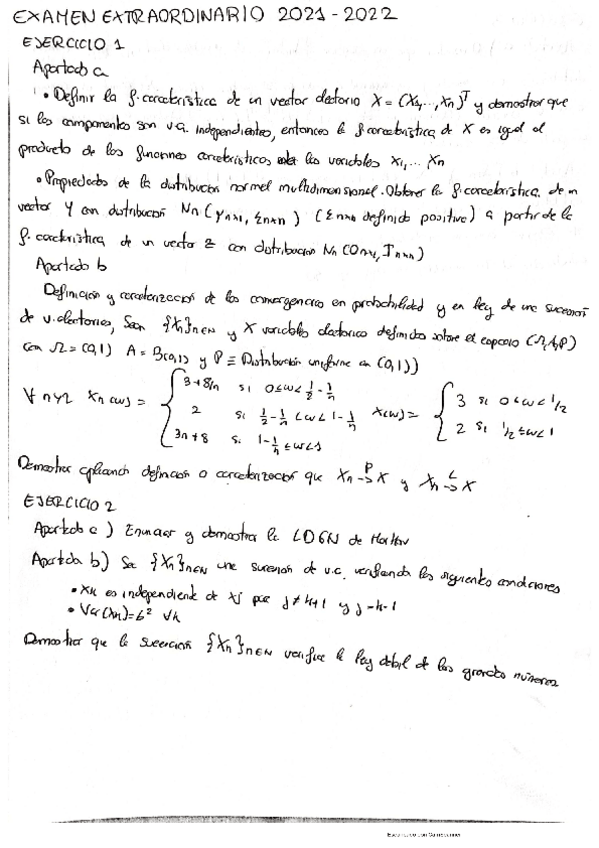 EXAMEN EXTRAORDINARIO 2021-2022
EJERCICIO 1
Apartado a
• Definir la f. característica de un vector aleatorio X = (X1,..., Xn)^T y demostrar que
si las componentes son v.a. independientes, entonces la f característica de X es igual al
producto de las funciones características de las variables X1,... Xn
• Propiedades de la distribución normal multidimensional. Obtener la f. característica de un
vector Y con distribución Nn (μnx1, Σnxn) (Σnxn definida positiva) a partir de la
f. característica de un vector Z con distribución Nn (Onx1, Inxn)
Apartado b
Definición y caracterización de las convergencias en probabilidad y en ley de una sucesión
de v. aleatorios, Sean {Xn}n∈N y X variables aleatorias definidas sobre el espacio (Ω,A,P)
con Ω = (0,1) A = B(0,1) y P ≡ Distribución uniforme en (0,1))
∀ n≥2 Xn(ω) = { 3+8/n si 0≤ω<1/2-1/n
2 si 1/2-1/n ≤ω<1-1/n
3n+8 si 1-1/n≤ω<1
X(ω) = { 3 si 0<ω<1/2
2 si 1/2≤ω<1
Demostrar aplicando definición o caracterización que Xn →P X y Xn →L X
EJERCICIO 2
Apartado a) Enunciar y demostrar la LDGN de Markov
Apartado b) Sea {Xn}n∈N una sucesión de v.a. verificando las siguientes condiciones
• Xk es independiente de Xj para j≠k+1 y j≠k-1
• Var(Xk)=6² ∀k
Demostrar que la sucesión {Xn}n∈N verifica la ley débil de los grandes números